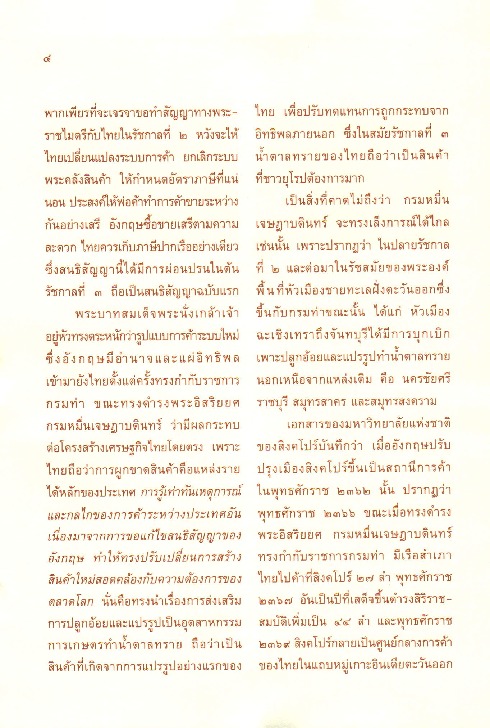 ๔
พากเพียรที่จะเจรจาขอทำสัญญาทางพระ-
ราชไมตรีกับไทยในรัชกาลที่ ๒ หวังจะให้
ไทยเปลี่ยนแปลงระบบการค้า ยกเลิกระบบ
พระคลังสินค้า ให้กำหนดอัตราภาษีที่แน่
นอน ประสงค์ให้พ่อค้าทำการค้าขายระหว่าง
กันอย่างเสรี อังกฤษซื้อขายเสรีตามความ
สะดวก ไทยควรเก็บภาษีปากเรืออย่างเดียว
ซึ่งสนธิสัญญานี้ได้มีการผ่อนปรนในต้น
รัชกาลที่ ๓ ถือเป็นสนธิสัญญาฉบับแรก
พระบาทสมเด็จพระนั่งเกล้าเจ้า
อยู่หัวทรงตระหนักว่ารูปแบบการค้าระบบใหม่
ซึ่งอังกฤษมีอำนาจและแผ่อิทธิพล
เข้ามายังไทยตั้งแต่ครั้งทรงกำกับราชการ
กรมท่า ขณะทรงดำรงพระอิสริยยศ
กรมหมื่นเจษฎาบดินทร์ ว่ามีผลกระทบ
ต่อโครงสร้างเศรษฐกิจไทยโดยตรง เพราะ
ไทยถือว่าการผูกขาดสินค้าคือแหล่งราย
ได้หลักของประเทศ การรู้เท่าทันเหตุการณ์
และกลไกของการค้าระหว่างประเทศอัน
เนื่องมาจากการขอแก้ไขสนธิสัญญาของ
อังกฤษ ทำให้ทรงปรับเปลี่ยนการสร้าง
สินค้าใหม่สอดคล้องกับความต้องการของ
ตลาดโลก นั่นคือทรงนำเรื่องการส่งเสริม
การปลูกอ้อยและแปรรูปเป็นอุตสาหกรรม
การเกษตรทำน้ำตาลทราย ถือว่าเป็น
สินค้าที่เกิดจากการแปรรูปอย่างแรกของ
ไทย เพื่อปรับทดแทนการถูกกระทบจาก
อิทธิพลภายนอก ซึ่งในสมัยรัชกาลที่ ๓
น้ำตาลทรายของไทยถือว่าเป็นสินค้า
ที่ชาวยุโรปต้องการมาก
เป็นสิ่งที่คาดไม่ถึงว่า กรมหมื่น
เจษฎาบดินทร์ จะทรงเล็งการณ์ได้ไกล
เช่นนั้น เพราะปรากฏว่า ในปลายรัชกาล
ที่ ๒ และต่อมาในรัชสมัยของพระองค์
พื้นที่หัวเมืองชายทะเลฝั่งตะวันออกซึ่ง
ขึ้นกับกรมท่าขณะนั้น ได้แก่ หัวเมือง
ฉะเชิงเทราถึงจันทบุรีได้มีการบุกเบิก
เพาะปลูกอ้อยและแปรรูปทำน้ำตาลทราย
นอกเหนือจากแหล่งเดิม คือ นครชัยศรี
ราชบุรี สมุทรสาคร และสมุทรสงคราม
เอกสารของมหาวิทยาลัยแห่งชาติ
ของสิงคโปร์บันทึกว่า เมื่ออังกฤษปรับ
ปรุงเมืองสิงคโปร์ขึ้นเป็นสถานีการค้า
ในพุทธศักราช ๒๓๖๒ นั้น ปรากฏว่า
พุทธศักราช ๒๓๖๖ ขณะเมื่อทรงดำรง
พระอิสริยยศ กรมหมื่นเจษฎาบดินทร์
ทรงกำกับราชการกรมท่า มีเรือสำเภา
ไทยไปค้าที่สิงคโปร์ ๒๗ ลำ พุทธศักราช
๒๓๖๗ อันเป็นปีที่เสด็จขึ้นดำรงสิริราช-
สมบัติเพิ่มเป็น ๔๔ ลำ และพุทธศักราช
๒๓๖๙ สิงคโปร์กลายเป็นศูนย์กลางการค้า
ของไทยในแถบหมู่เกาะอินเดียตะวันออก